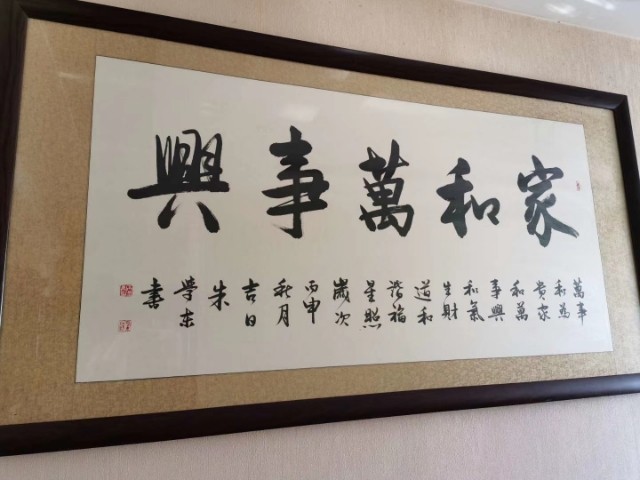 家和萬事興
萬事
和為
貴家
和萬
事興
和氣
生財
道和
諧福
星照
歲次
丙申
秋月
吉日
朱
學東
書